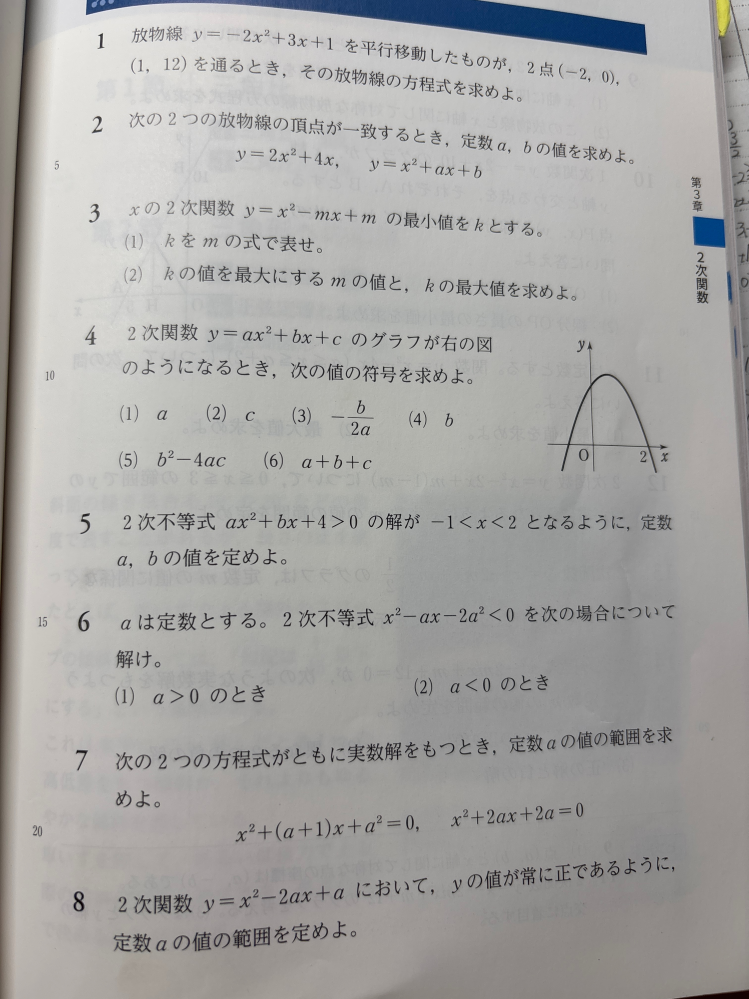 1 放物線 y=−2x²+3x+1 を平行移動したものが，2点(−2, 0),
(1, 12)を通るとき，その放物線の方程式を求めよ。
2 次の2つの放物線の頂点が一致するとき，定数a, bの値を求めよ。
5 y=2x²+4x, y=x²+ax+b
3 xの2次関数 y=x²−mx+m の最小値をkとする。
(1) kをmの式で表せ。
(2) kの値を最大にするmの値と，kの最大値を求めよ。
4 2次関数 y=ax²+bx+c のグラフが右の図
10 のようになるとき，次の値の符号を求めよ。
(1) a (2) c (3) −b/2a (4) b
(5) b²−4ac (6) a+b+c
y
O 2 x
5 2次不等式 ax²+bx+4>0 の解が −1<x<2 となるように，定数
a, bの値を定めよ。
15 6 aは定数とする。2次不等式 x²−ax−2a²<0 を次の場合について
解け。
(1) a>0 のとき (2) a<0 のとき
7 次の2つの方程式がともに実数解をもつとき，定数aの値の範囲を求
めよ。
20 x²+(a+1)x+a²=0, x²+2ax+2a=0
8 2次関数 y=x²−2ax+a において，yの値が常に正であるように，
定数aの値の範囲を定めよ。
第3章
2次関数